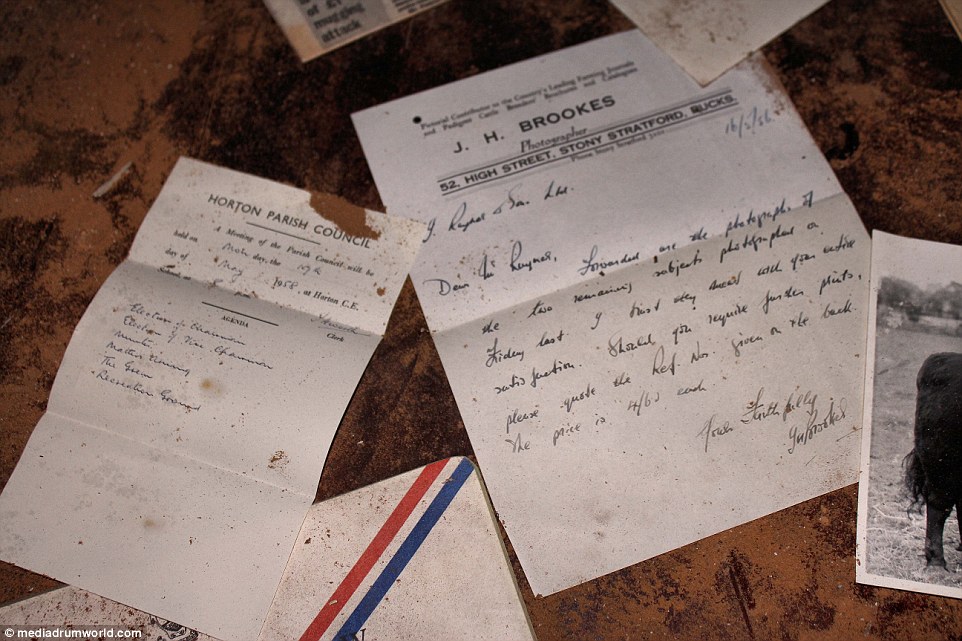 of £1
mugging
attack
Pictorial Contributor to the Country's Leading Farming Journals
and Pedigree Cattle Breeders' Brochures and Catalogues
J. H. BROOKES
Photographer
52, HIGH STREET, STONY STRATFORD, BUCKS.
Phone Stony Stratford
16/5/56
& Son. Ltd.
Dear Mr Rayner,
Forwarded are the photographs of
the two remaining subjects photographed on
Friday last. I trust they meet with your entire
satisfaction. Should you require further prints,
please quote the Ref Nos. given on the back.
The price is 4/6d each.
Yours Faithfully
JHBrookes
HORTON PARISH COUNCIL
A Meeting of the Parish Council will be
held on day, the 19th
day of May 1958, at Horton C.E.
School
Clerk
AGENDA
Election of Chairman
Election of Vice Chairman
Minutes
Matters Arising
The Green
Recreation Ground
© mediadrumworld.com